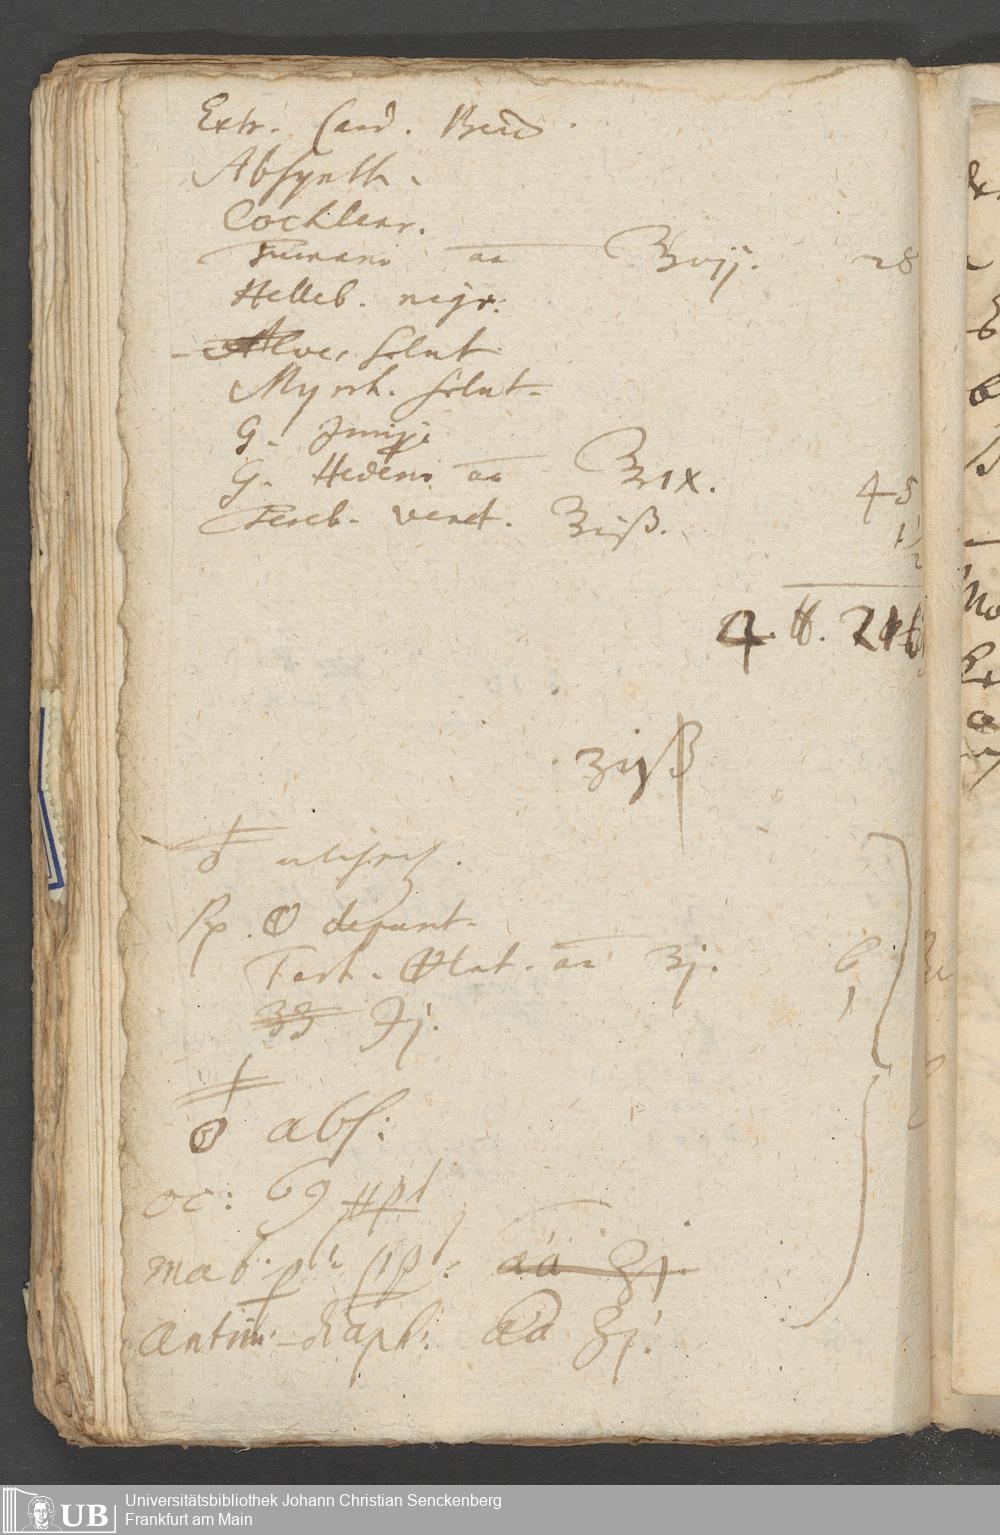 Extr. Card. Bened.
Absynth.
Cochlear.
Fumari aa ℥vij. 28
Helleb. nigr.
Aloes solut
Myrrh. solut.
G. Junip.
G. Hederae aa ℥ix. 45
Tereb. venet. ℥iß. 1 1/2
4 ℔.
ʒijß
Rp. depurat.
Tart. ⦶lat. aa ʒj. 6
Ɔj. 1
abs:
oc: 69 ppt
mat. p. pp: aa ʒj.
antim. diaph: aa ʒj.
UB
Universitätsbibliothek Johann Christian Senckenberg
Frankfurt am Main